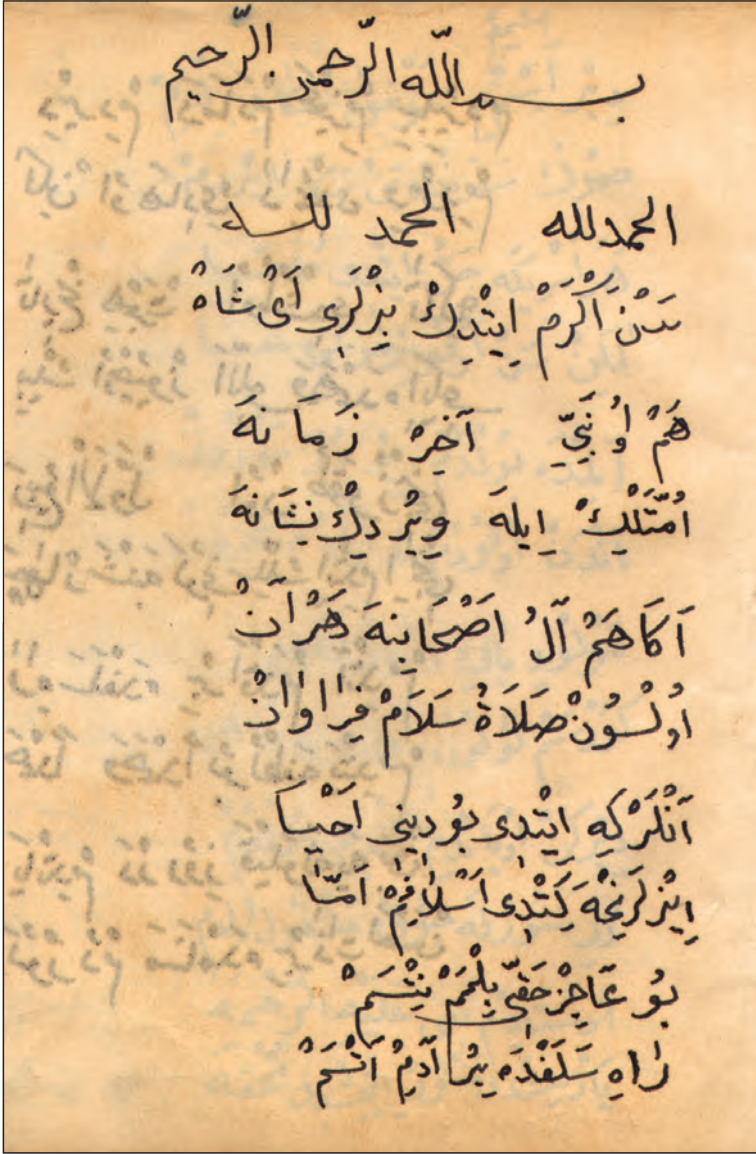 بسم الله الرّحمن الرّحيم
الحمد لله الحمد لله
سَنْ اَكْرَمْ اِيتْدِكْ بِزْلَرِى اَىْ شَاهْ
هَمْ اُو نَبِىِّ آخِرْ زَمَانَهَ
اُمَّتَلِيكْ اِيلَهَ وِيرْدِيكْ نِشَانَهَ
آكَا هَمْ آلُ اَصْحَابِنَهَ هَرْ آنْ
اُولْسُونْ صَلَاةُ سَلَامْ فِرَاوَانْ
آنْلَرْ كِه اِيتْدِى بُو دِينِى اَحْيَا
اِيزْلَرِنْجَهَ كَتْدِى اَسْلَافِمْ اَمَّا
بُو عَاجِزْ حَقِّى بِلْمَمْ نِتْسَمْ
رَاهِ سَلَفْدَه بِرْ آدِمْ آتْسَمْ